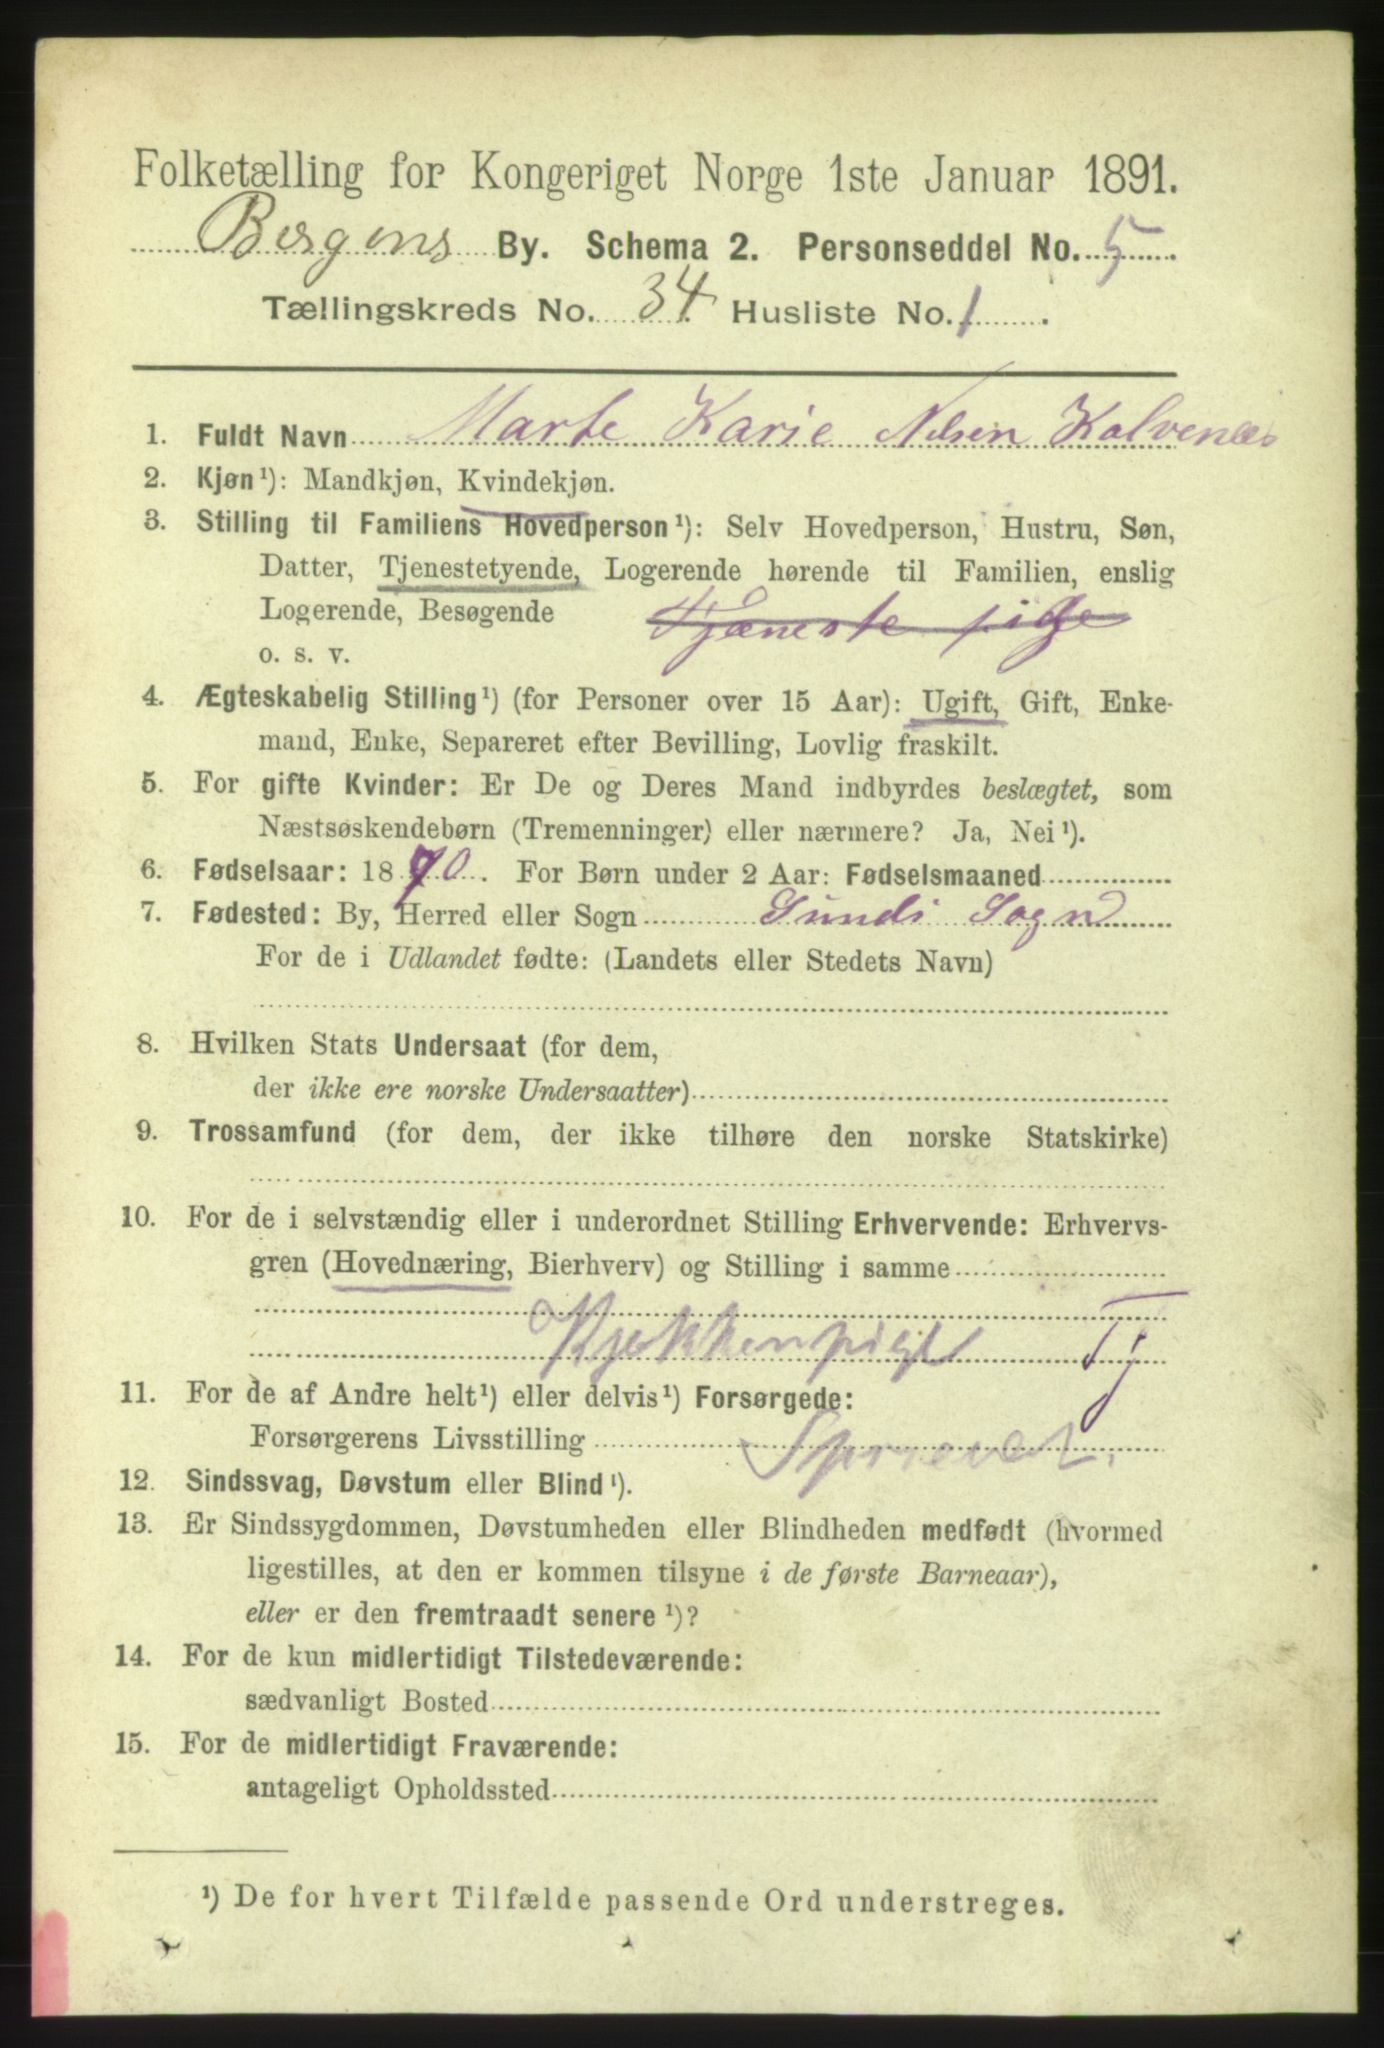 Folketælling for Kongeriget Norge 1ste Januar 1891.
Bergens By. Schema 2. Personseddel No. 5.
Tællingskreds No. 34. Husliste No. 1.
1. Fuldt Navn Marte Karie Nilsen Kalvenæs
2. Kjøn¹): Mandkjøn, Kvindekjøn.
3. Stilling til Familiens Hovedperson¹): Selv Hovedperson, Hustru, Søn,
Datter, Tjenestetyende, Logerende hørende til Familien, enslig
Logerende, Besøgende Tjæneste pige
o. s. v.
4. Ægteskabelig Stilling¹) (for Personer over 15 Aar): Ugift, Gift, Enke-
mand, Enke, Separeret efter Bevilling, Lovlig fraskilt.
5. For gifte Kvinder: Er De og Deres Mand indbyrdes beslægtet, som
Næstsøskendebørn (Tremenninger) eller nærmere? Ja, Nei¹).
6. Fødselsaar: 1870. For Børn under 2 Aar: Fødselsmaaned
7. Fødested: By, Herred eller Sogn Sunds Sogn
For de i Udlandet fødte: (Landets eller Stedets Navn)
8. Hvilken Stats Undersaat (for dem,
der ikke ere norske Undersaatter)
9. Trossamfund (for dem, der ikke tilhøre den norske Statskirke)
10. For de i selvstændig eller i underordnet Stilling Erhvervende: Erhvervs-
gren (Hovednæring, Bierhverv) og Stilling i samme
Kjøkkenpige Tj
11. For de af Andre helt¹) eller delvis¹) Forsørgede:
Forsørgerens Livsstilling
12. Sindssvag, Døvstum eller Blind¹).
13. Er Sindssygdommen, Døvstumheden eller Blindheden medfødt (hvormed
ligestilles, at den er kommen tilsyne i de første Barneaar),
eller er den fremtraadt senere¹)?
14. For de kun midlertidigt Tilstedeværende:
sædvanligt Bosted
15. For de midlertidigt Fraværende:
antageligt Opholdssted
¹) De for hvert Tilfælde passende Ord understreges.